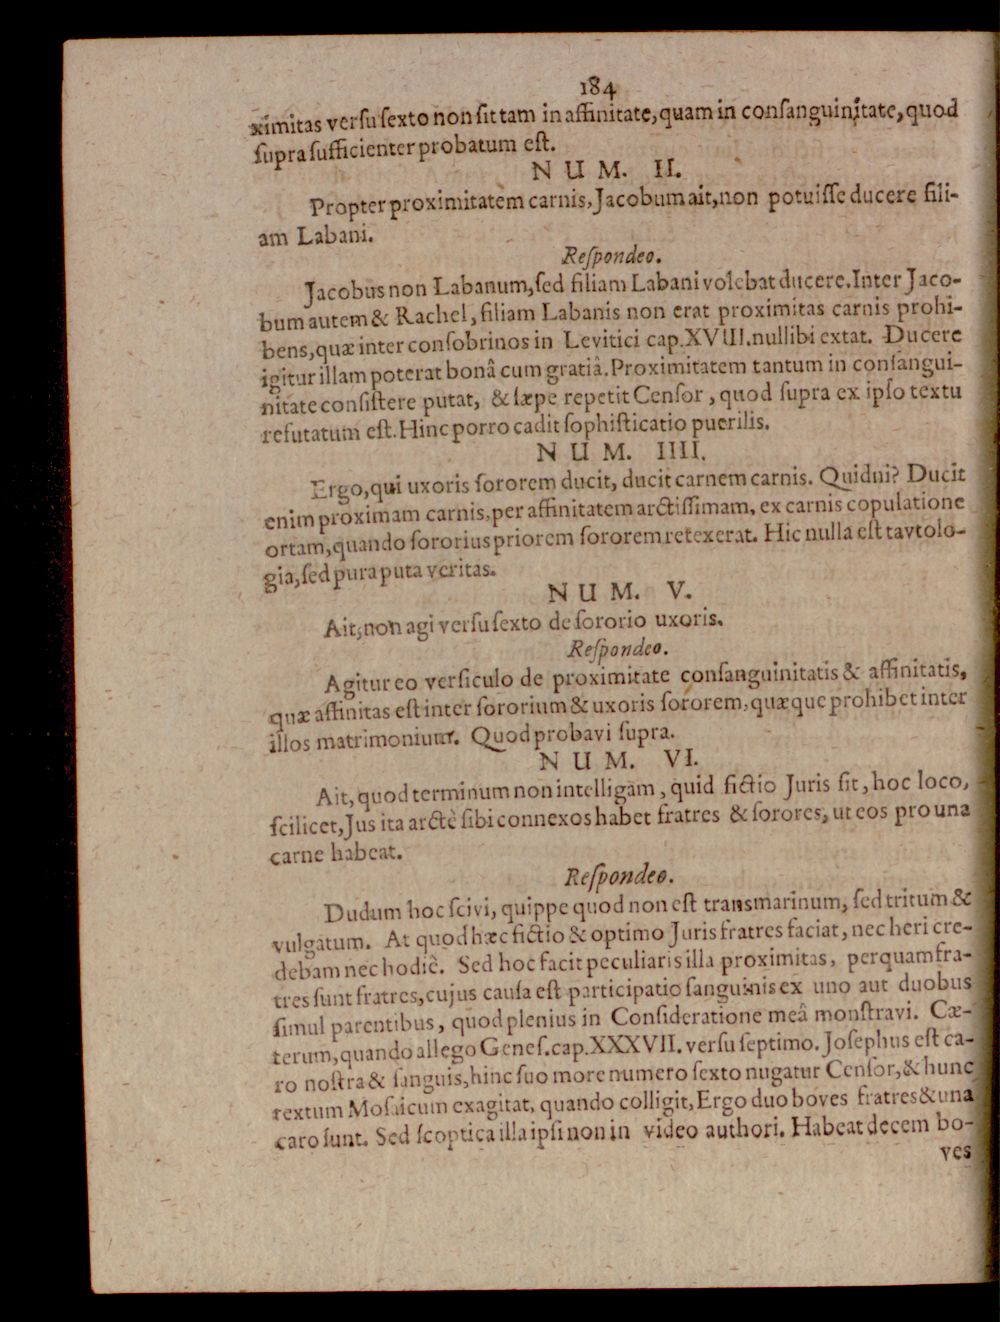 184
ximitas verſu ſexto non ſit tam in affinitate, quam in conſanguinitate, quod
ſupra ſufficienter probatum eſt.
NUM. II.
Propter proximitatem carnis, Jacobum ait, non potuiſſe ducere fili-
am Labani.
Reſpondeo.
Jacobus non Labanum, ſed filiam Labani volebat ducere. Inter Jaco-
bum autem & Rachel, filiam Labanis non erat proximitas carnis prohi-
bens, quæ inter conſobrinos in Levitici cap. XVIII. nullibi extat. Ducere
igitur illam poterat bonâ cum gratiâ. Proximitatem tantum in conſangui-
nitate conſiſtere putat, & ſæpe repetit Cenſor, quod ſupra ex ipſo textu
refutatum eſt. Hinc porro cadit ſophiſticatio puerilis.
NUM. IIII.
Ergo, qui uxoris ſororem ducit, ducit carnem carnis. Quidni? Ducit
enim proximam carnis, per affinitatem arctiſſimam, ex carnis copulatione
ortam, quando ſororius priorem ſororem retexerat. Hic nulla eſt tavtolo-
gia, ſed pura puta veritas.
NUM. V.
Ait, non agi verſu ſexto de ſororio uxoris.
Reſpondeo.
Agitur eo verſiculo de proximitate conſanguinitatis & affinitatis,
quæ affinitas eſt inter ſororium & uxoris ſororem, quæque prohibet inter
illos matrimonium. Quod probavi ſupra.
NUM. VI.
Ait, quod terminum non intelligam, quid fictio Juris ſit, hoc loco,
ſcilicet, Jus ita arctè ſibi connexos habet fratres & ſorores, ut eos pro una
carne habeat.
Reſpondeo.
Dudum hoc ſcivi, quippe quod non eſt transmarinum, ſed tritum &
vulgatum. At quod hæc fictio & optimo Juris fratres faciat, nec heri cre-
debam nec hodiè. Sed hoc facit peculiaris illa proximitas, perquam fra-
tres ſunt fratres, cujus cauſa eſt participatio ſanguinis ex uno aut duobus
ſimul parentibus, quod plenius in Conſideratione meâ monſtravi. Cæ-
terum, quando allego Geneſ. cap. XXXVII. verſu ſeptimo. Joſephus eſt ca-
ro noſtra & ſanguis, hinc ſuo more numero ſexto nugatur Cenſor, & hunc
textum Moſaicum exagitat, quando colligit, Ergo duo boves fratres & una
caro ſunt. Sed ſcoptica illa ipſi non in video authori. Habeat decem bo-
ves